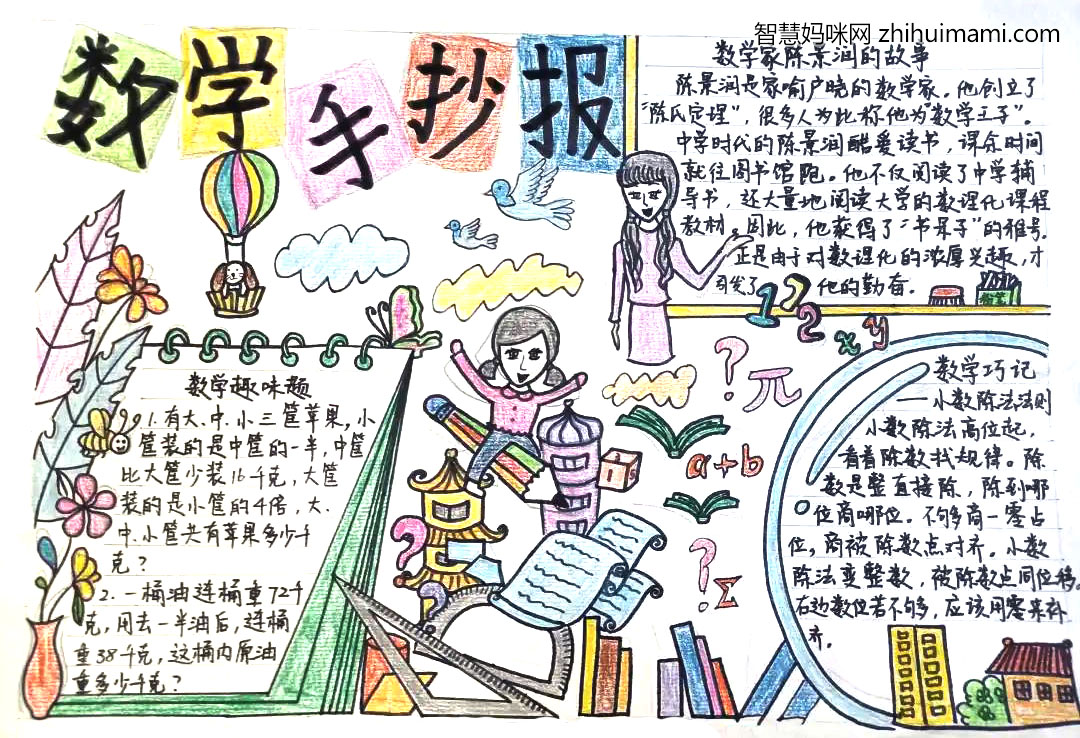 智慧妈咪网 zhihuimami.com
数学手抄报
数学家陈景润的故事
陈景润是家喻户晓的数学家。他创立了
“陈氏定理”，很多人为此称他为“数学王子”。
中学时代的陈景润酷爱读书，课余时间
就往图书馆跑。他不仅阅读了中学辅
导书，还大量地阅读大学的数理化课程
教材。因此，他获得了“书呆子”的雅号。
正是由于对数理化的浓厚兴趣，才
引发了他的勤奋。
1 7 2 x y
数学趣味题
1.有大、中、小三筐苹果，小
筐装的是中筐的一半，中筐
比大筐少装16千克，大筐
装的是小筐的4倍，大、
中、小筐共有苹果多少千
克？
2.一桶油连桶重72千
克，用去一半油后，连桶
重38千克，这桶内原油
重多少千克？
? π
a+b
? Σ
?
?
数学巧记
——小数除法法则
小数除法高位起，
看着除数找规律。除
数是整直接除，除到哪
位商哪位。不够商一零占
位，商被除数点对齐。小数
除法变整数，被除数点同位移。
右边数位若不够，应该用零来补
齐。